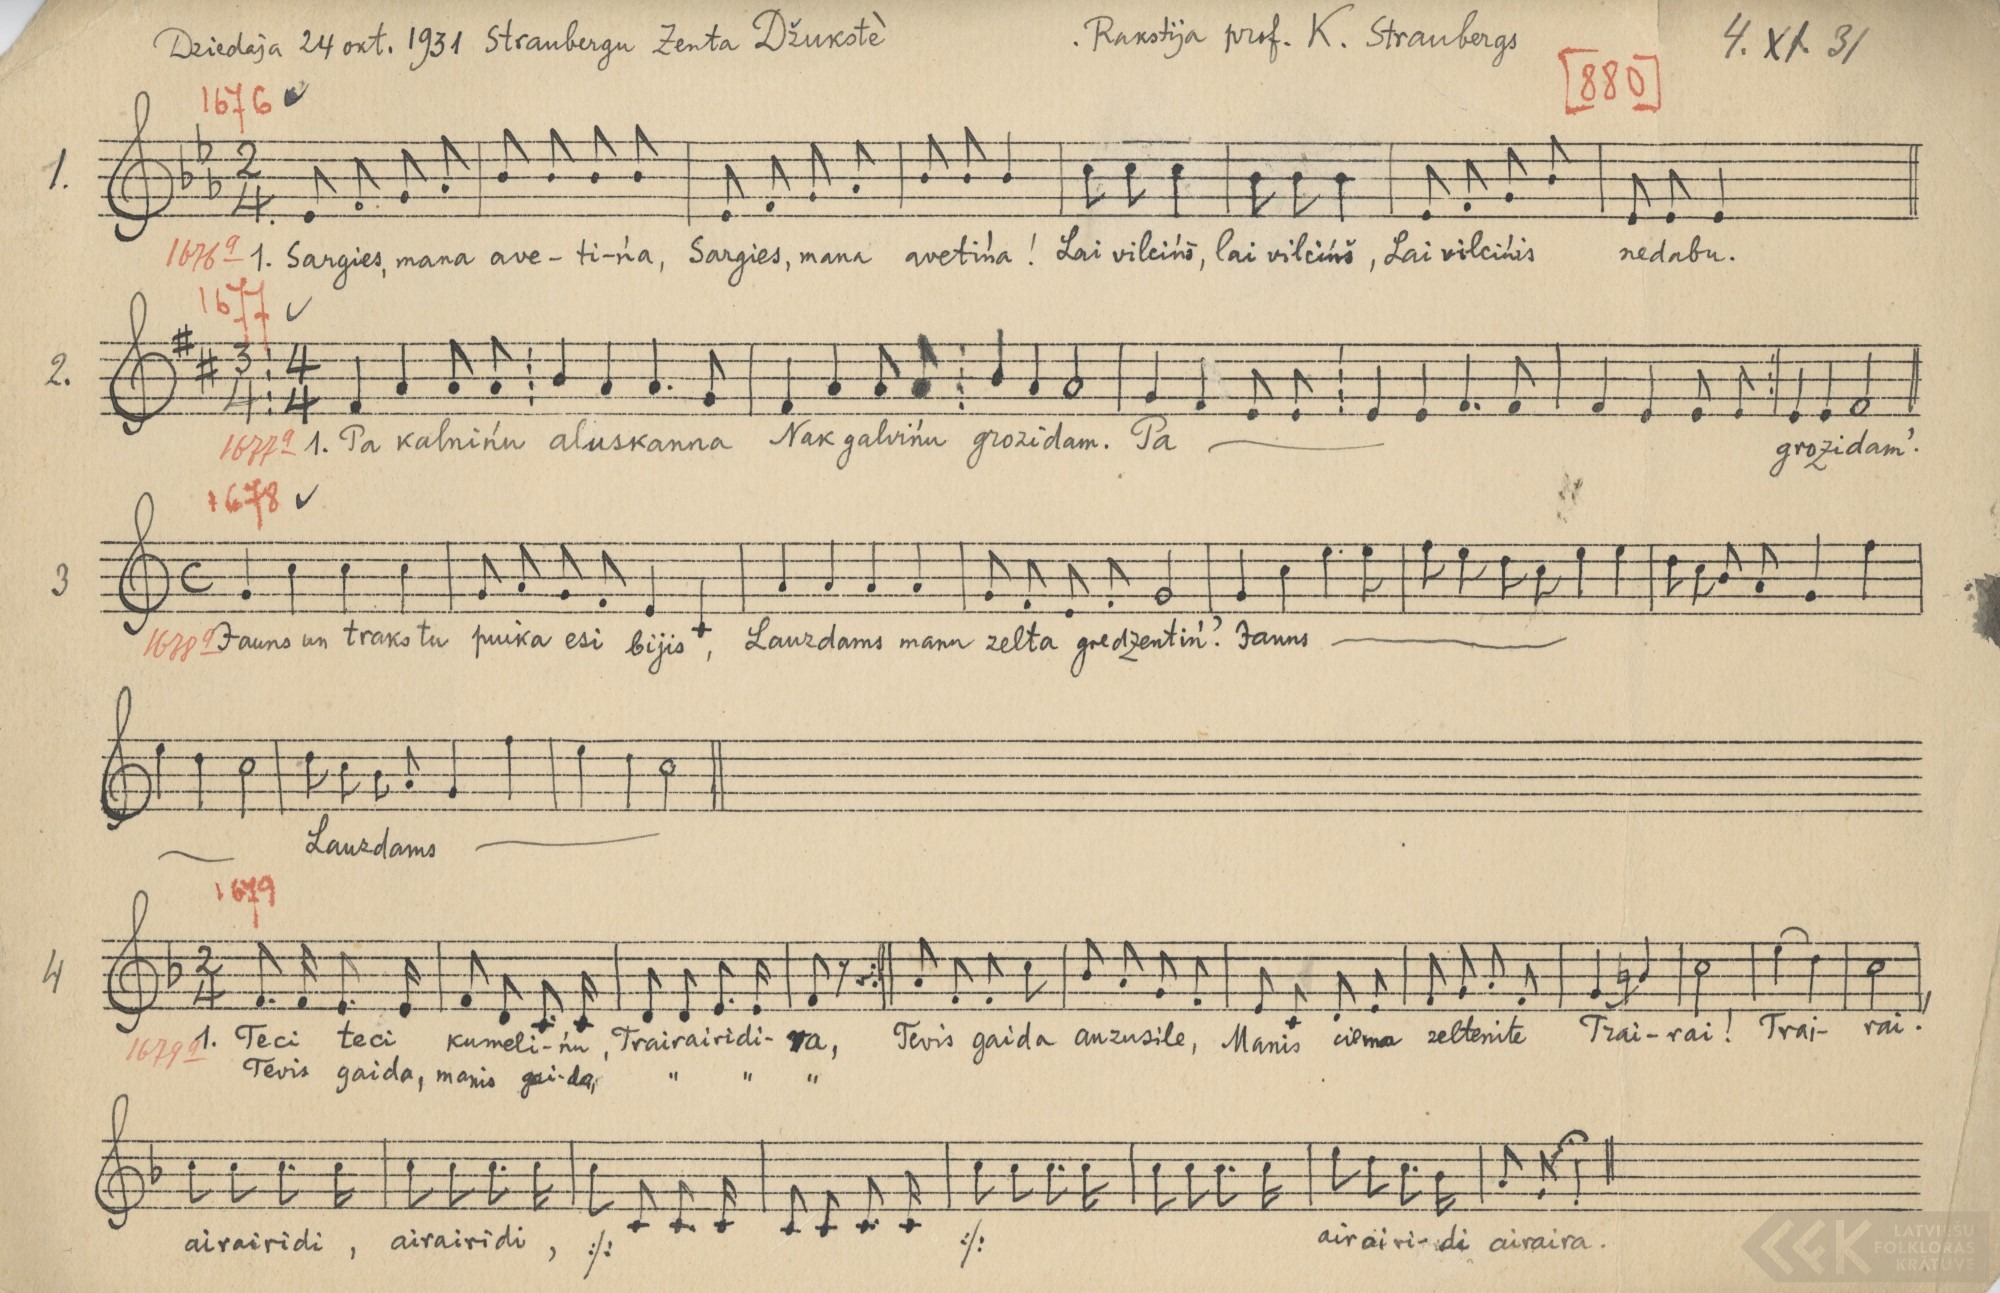 Dziedaja 24 okt. 1931 Straubergu Zenta Džukstè . Rakstija prof. K. Straubergs 4. XI. 31
[880]
1676
1. 2 4
1676a 1. Sargies, mana ave-ti-ńa, Sargies, mana avetińa! Lai vilcińš, lai vilcińš, Lai vilcińis nedabu.
1677
2. 3 4 4 4
1677a 1. Pa kalnińu aluskanna Nak galvińu grozidam. Pa grozidam'.
1678
3
1678a Jauns un trakstu puika esi bijis, Lauzdams manu zelta gredzentiń? Jauns
Lauzdams
1679
4 2 4
1679a 1. Teci teci kumeli-ńu, Trairairidi-ra, Tevis gaida auzusile, Manis ciema zeltenite Trai-rai! Trai-rai.
Tevis gaida, manis gai-da, " " "
airairidi, airairidi, :/: :/: airairi-di airaira.
LATVIEŠU
FOLKLORAS
KRATUVE